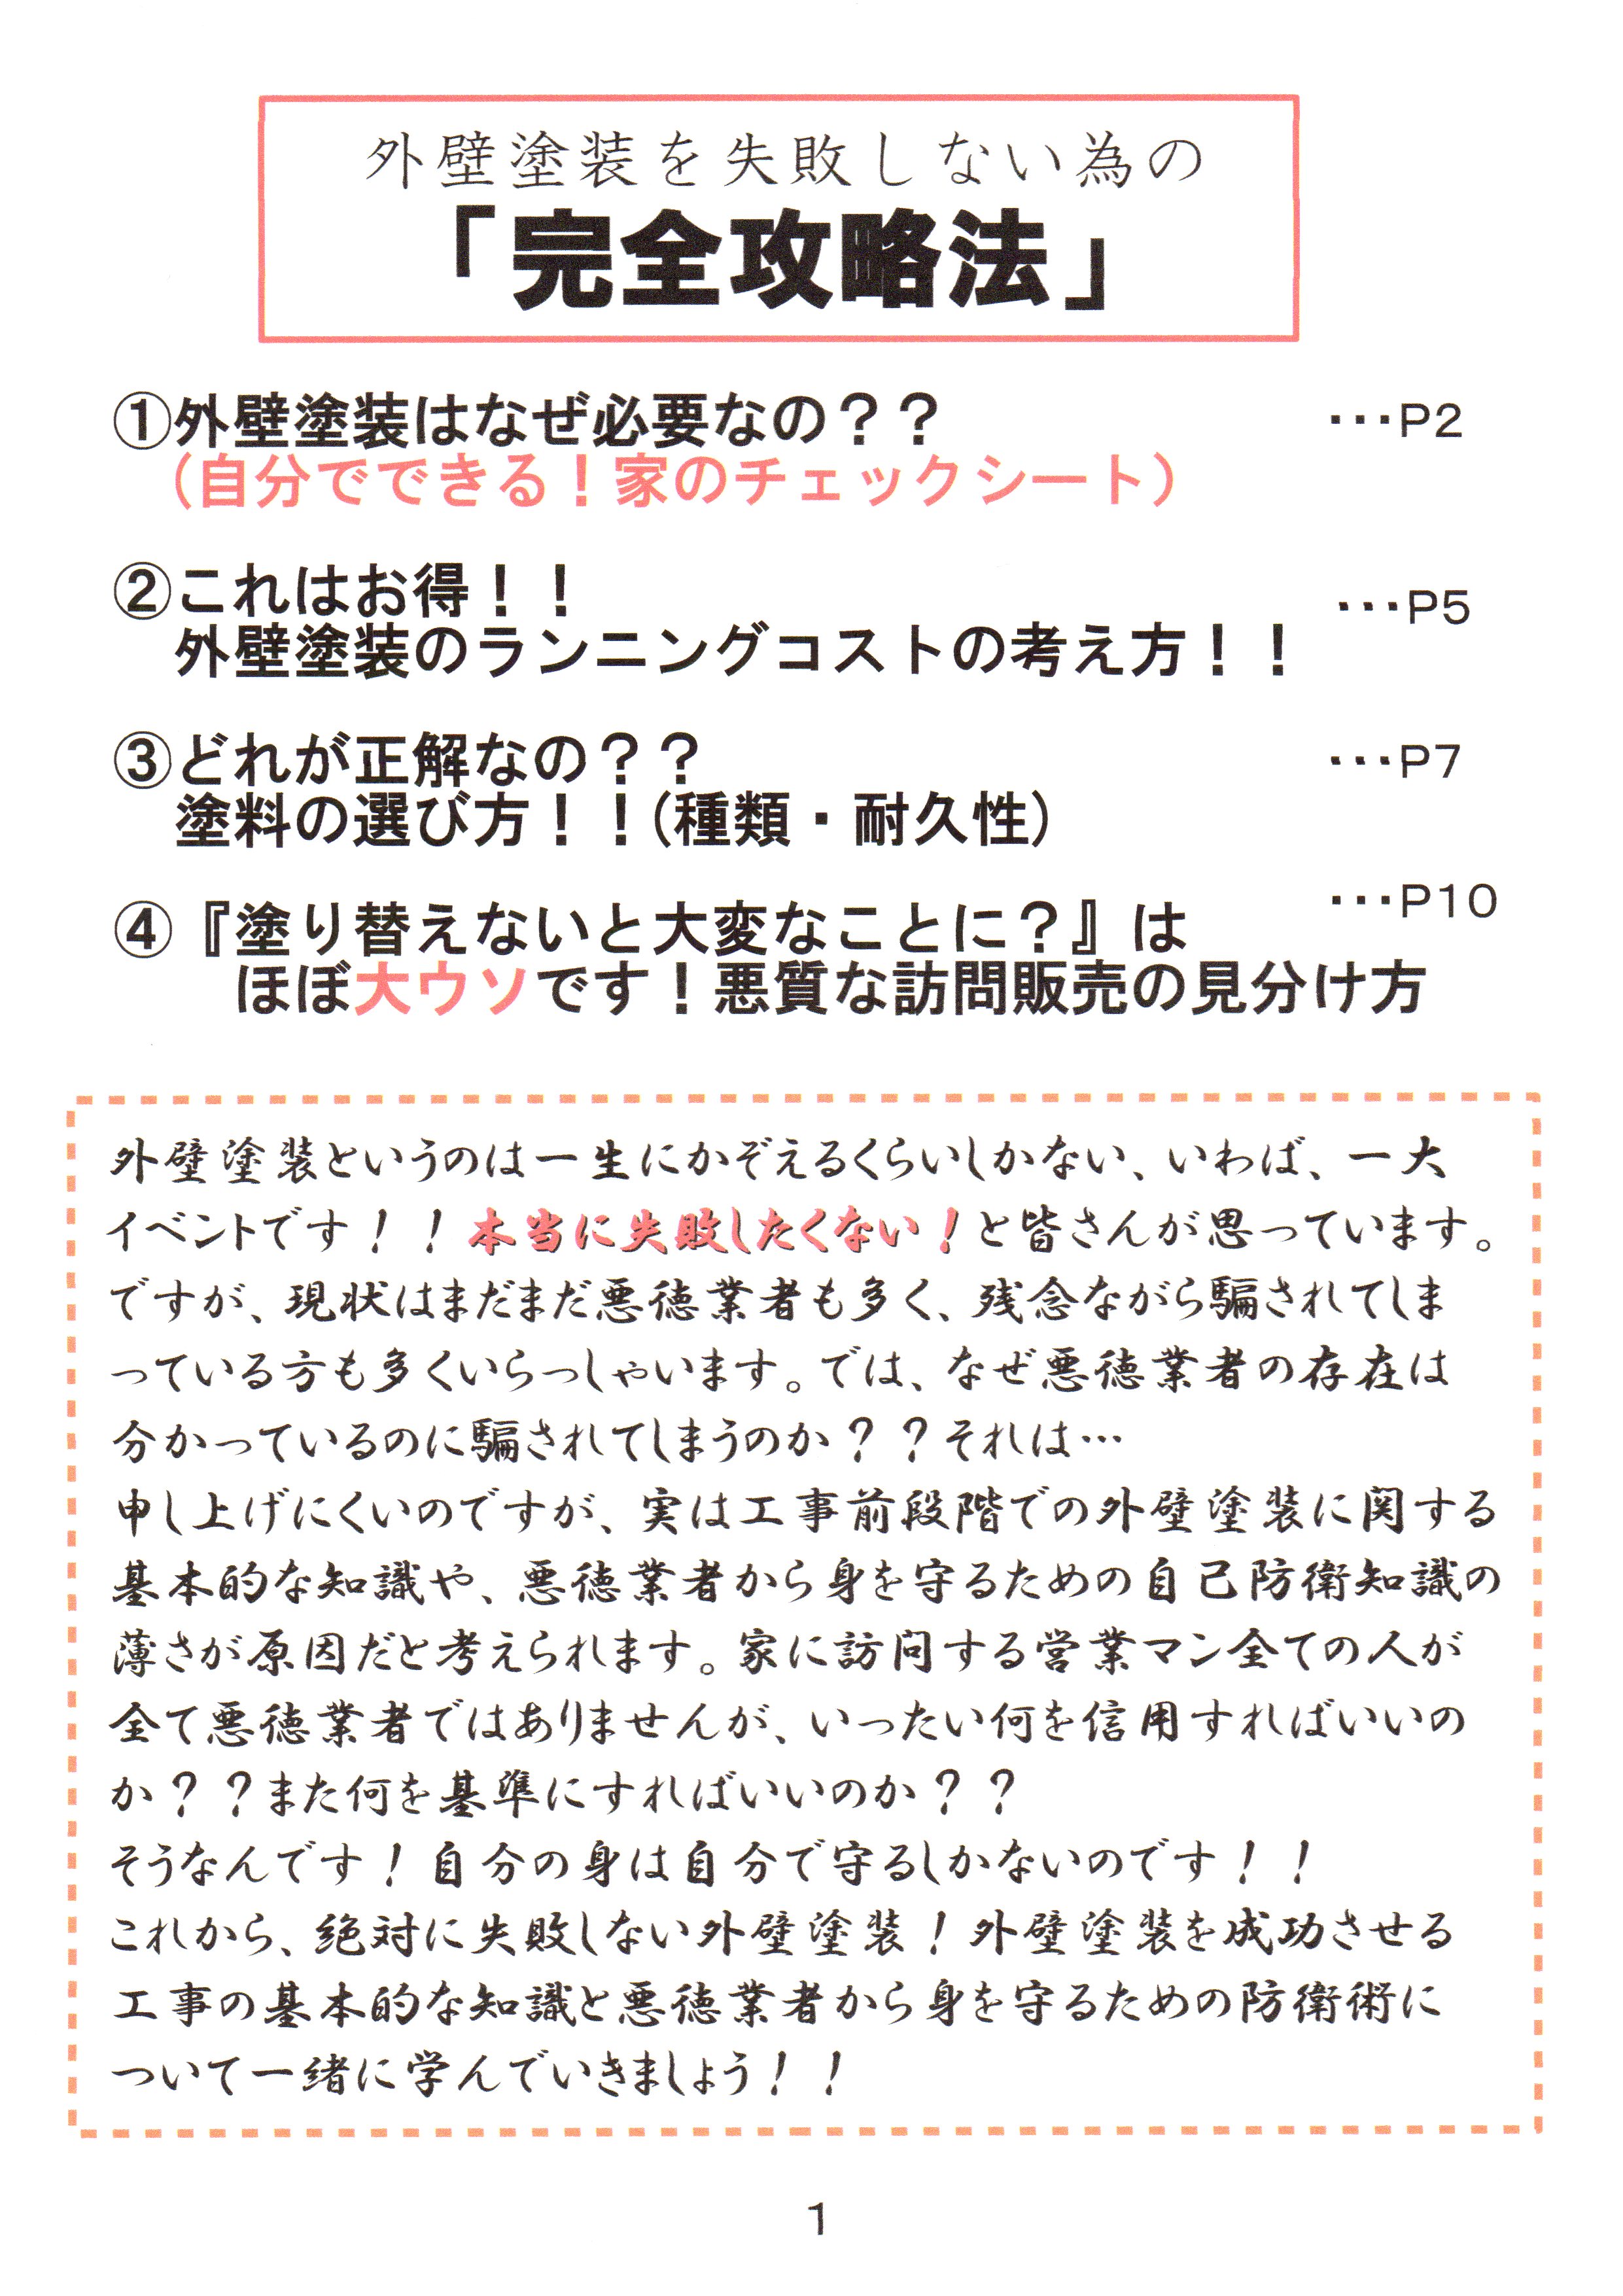 外壁塗装を失敗しない為の
「完全攻略法」
①外壁塗装はなぜ必要なの？？ …P2
（自分でできる！家のチェックシート）
②これはお得！！ …P5
外壁塗装のランニングコストの考え方！！
③どれが正解なの？？ …P7
塗料の選び方！！(種類・耐久性)
④『塗り替えないと大変なことに？』は …P10
ほぼ大ウソです！悪質な訪問販売の見分け方
外壁塗装というのは一生にかぞえるくらいしかない、いわば、一大
イベントです！！本当に失敗したくない！と皆さんが思っています。
ですが、現状はまだまだ悪徳業者も多く、残念ながら騙されてしま
っている方も多くいらっしゃいます。では、なぜ悪徳業者の存在は
分かっているのに騙されてしまうのか？？それは…
申し上げにくいのですが、実は工事前段階での外壁塗装に関する
基本的な知識や、悪徳業者から身を守るための自己防衛知識の
薄さが原因だと考えられます。家に訪問する営業マン全ての人が
全て悪徳業者ではありませんが、いったい何を信用すればいいの
か？？また何を基準にすればいいのか？？
そうなんです！自分の身は自分で守るしかないのです！！
これから、絶対に失敗しない外壁塗装！外壁塗装を成功させる
工事の基本的な知識と悪徳業者から身を守るための防衛術に
ついて一緒に学んでいきましょう！！
1